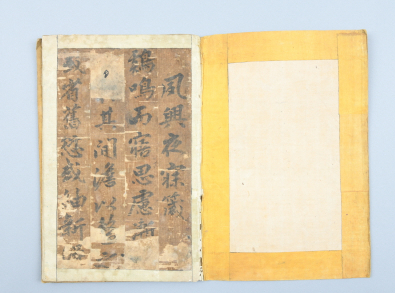 夙興夜寐箴
鷄鳴而寤思慮漸
其間澹以整
或省舊愆或紬新